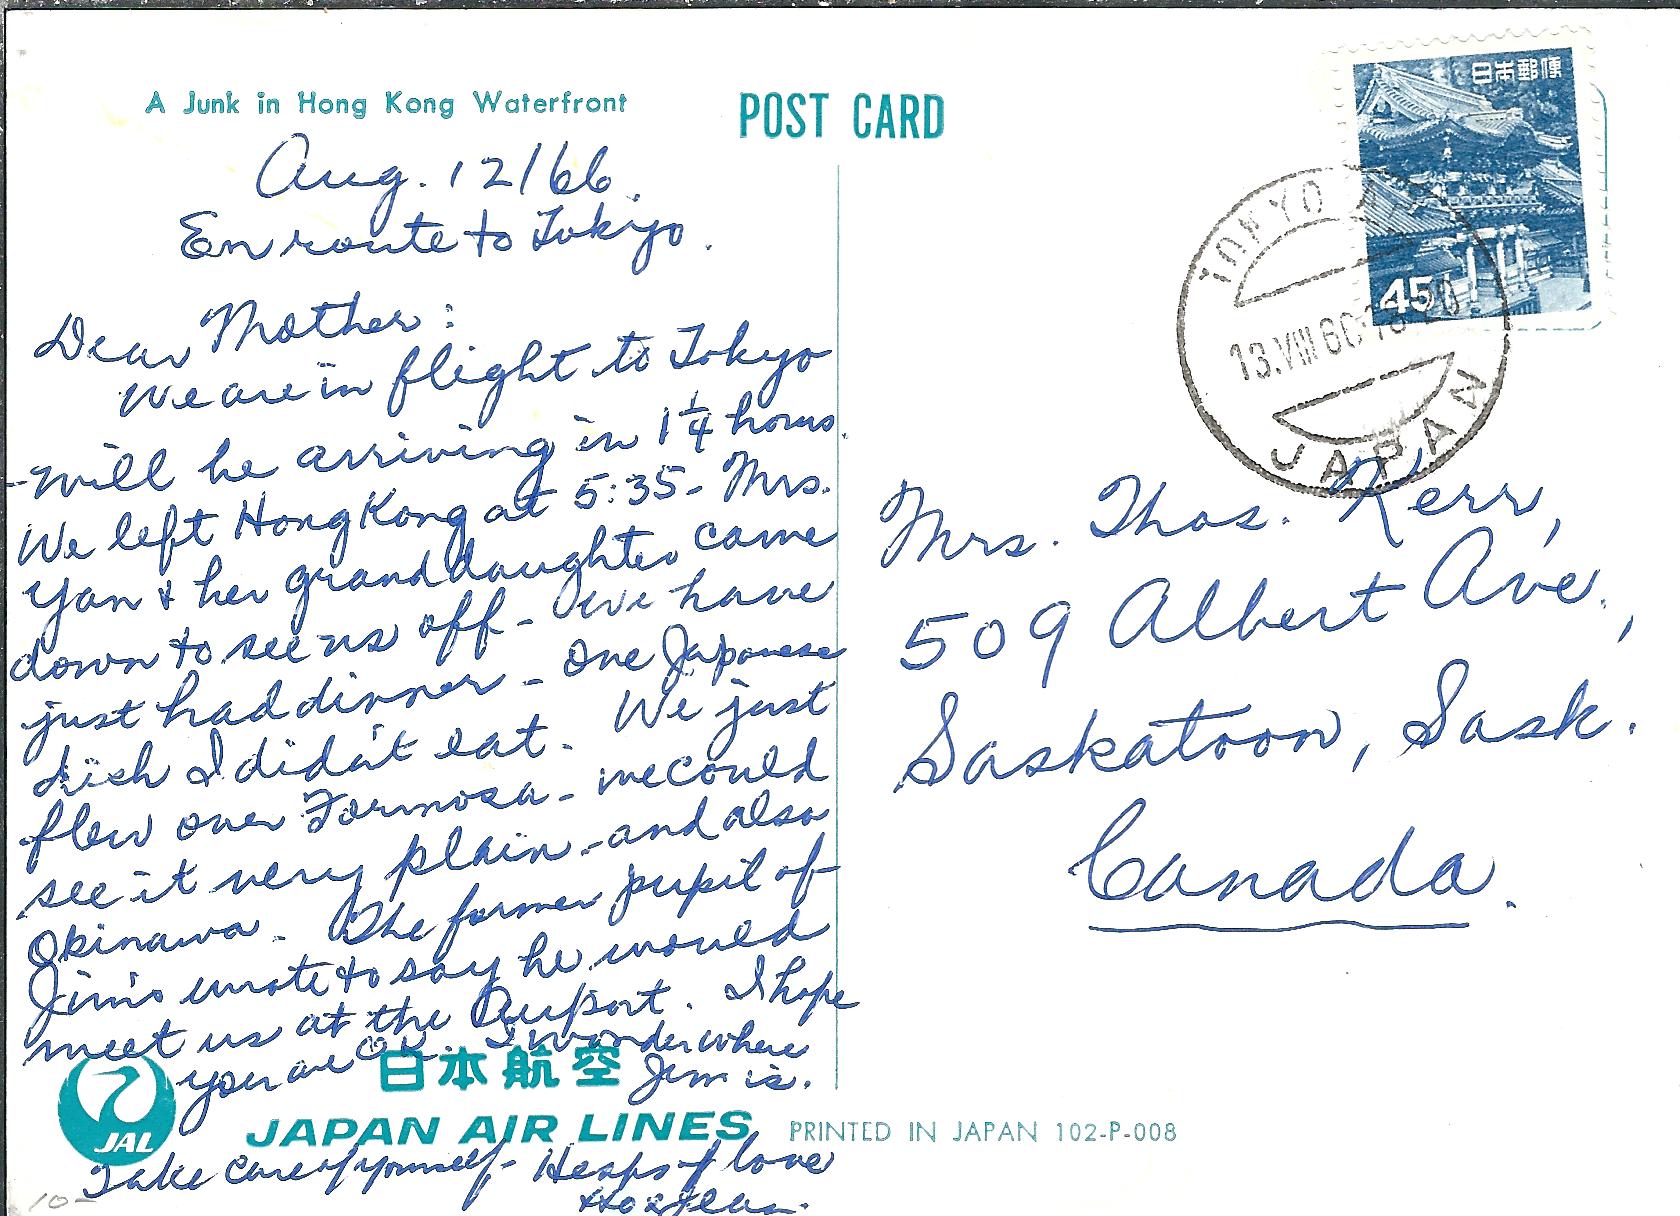 A Junk in Hong Kong Waterfront
POST CARD
日本郵便
45
TOKYO
13.VIII 60
JAPAN
Aug. 12/66.
En route to Tokyo.
Dear Mother:
We are in flight to Tokyo
- will be arriving in 1 1/4 hours.
We left Hong Kong at 5:35 - Mrs.
Yan & her granddaughter came
down to see us off - We have
just had dinner - one Japanese
dish I didn't eat. We just
flew over Formosa - we could
see it very plain - and also
Okinawa. The former pupil of
Jim's wrote to say he would
meet us at the Airport. I hope
you are OK. I wonder where
Jim is.
日本航空
JAL
JAPAN AIR LINES
PRINTED IN JAPAN 102-P-008
Take care of yourself - Heaps of love
Mrs. Thos. Kerr,
509 Albert Ave.,
Saskatoon, Sask.
Canada.
10-